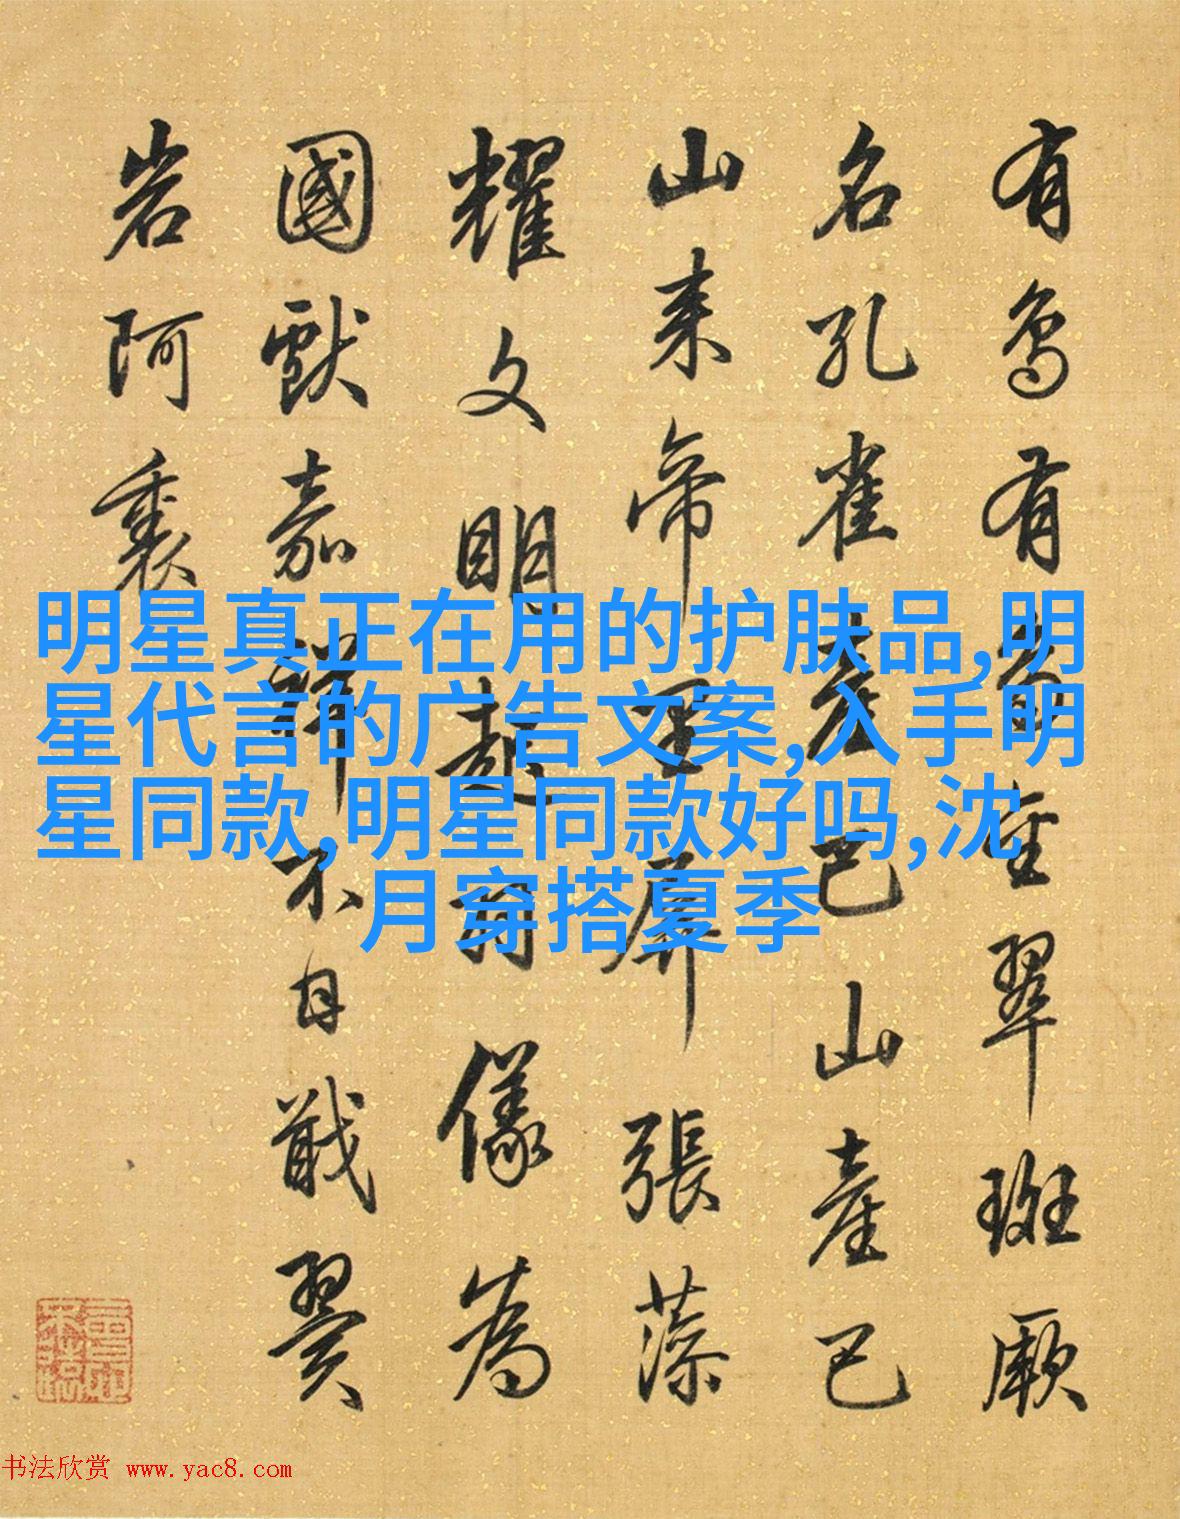 有鳥有鳥金翠斑厥
名孔雀產巴山產巴
山来帝王屏張藻
耀文明起羽儀為
國獻嘉祥不自戢翼
岩阿裏
明星真正在用的护肤品,明
星代言的广告文案,入手明
星同款,明星同款好吗,沈
月穿搭夏季
书法欣赏 www.yac8.com